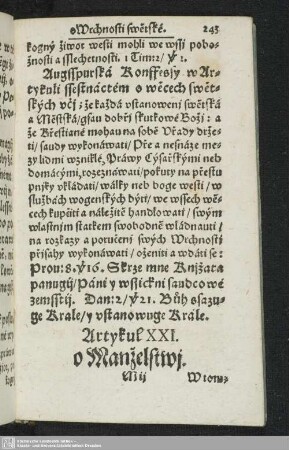 o Wrchnosti swětské. 243
kogný žiwot westi mohli we wssi pobo-
žnosti a sslechetnosti. 1 Timot: 2/ ꝟ 2.
Augsspurská Konffessy w Ar-
tykuli ssestnáctém o wěcech swět-
ských včj: že každá vstanowení swětská
a Městská/ gsau dobřj skutkowé Boži: a
že Křestiané mohau na sobě Vřady drže-
ti/ saudy wykonáwati/ Pře a nesnáze me-
zy lidmi wzniklé/ Práwy Cýsařskými neb
domácými/ rozeznáwati/ pokuty na přestu
pnjky wkládati/ wálky neb boge westi/ w
službách wogenských býti/ we wssech wě-
cech kupčiti a náležitě handlowati/ swým
wlastnim statkem swobodně wládnauti/
na rozkazy a poručeni swých Wrchnostj
přisahy wykonáwati/ oženiti a wdáti se:
Prou: 8. ꝟ 16. Skrze mne Knjžata
panugj/ Páni y wssickni saudcowé
zemsstij. Dan: 2/ ꝟ 21. Bůh ssazu-
ge Krále/ y vstanowuge Krále.
Artykuł XXI.
o Manželstwj.
M ij Wtom-